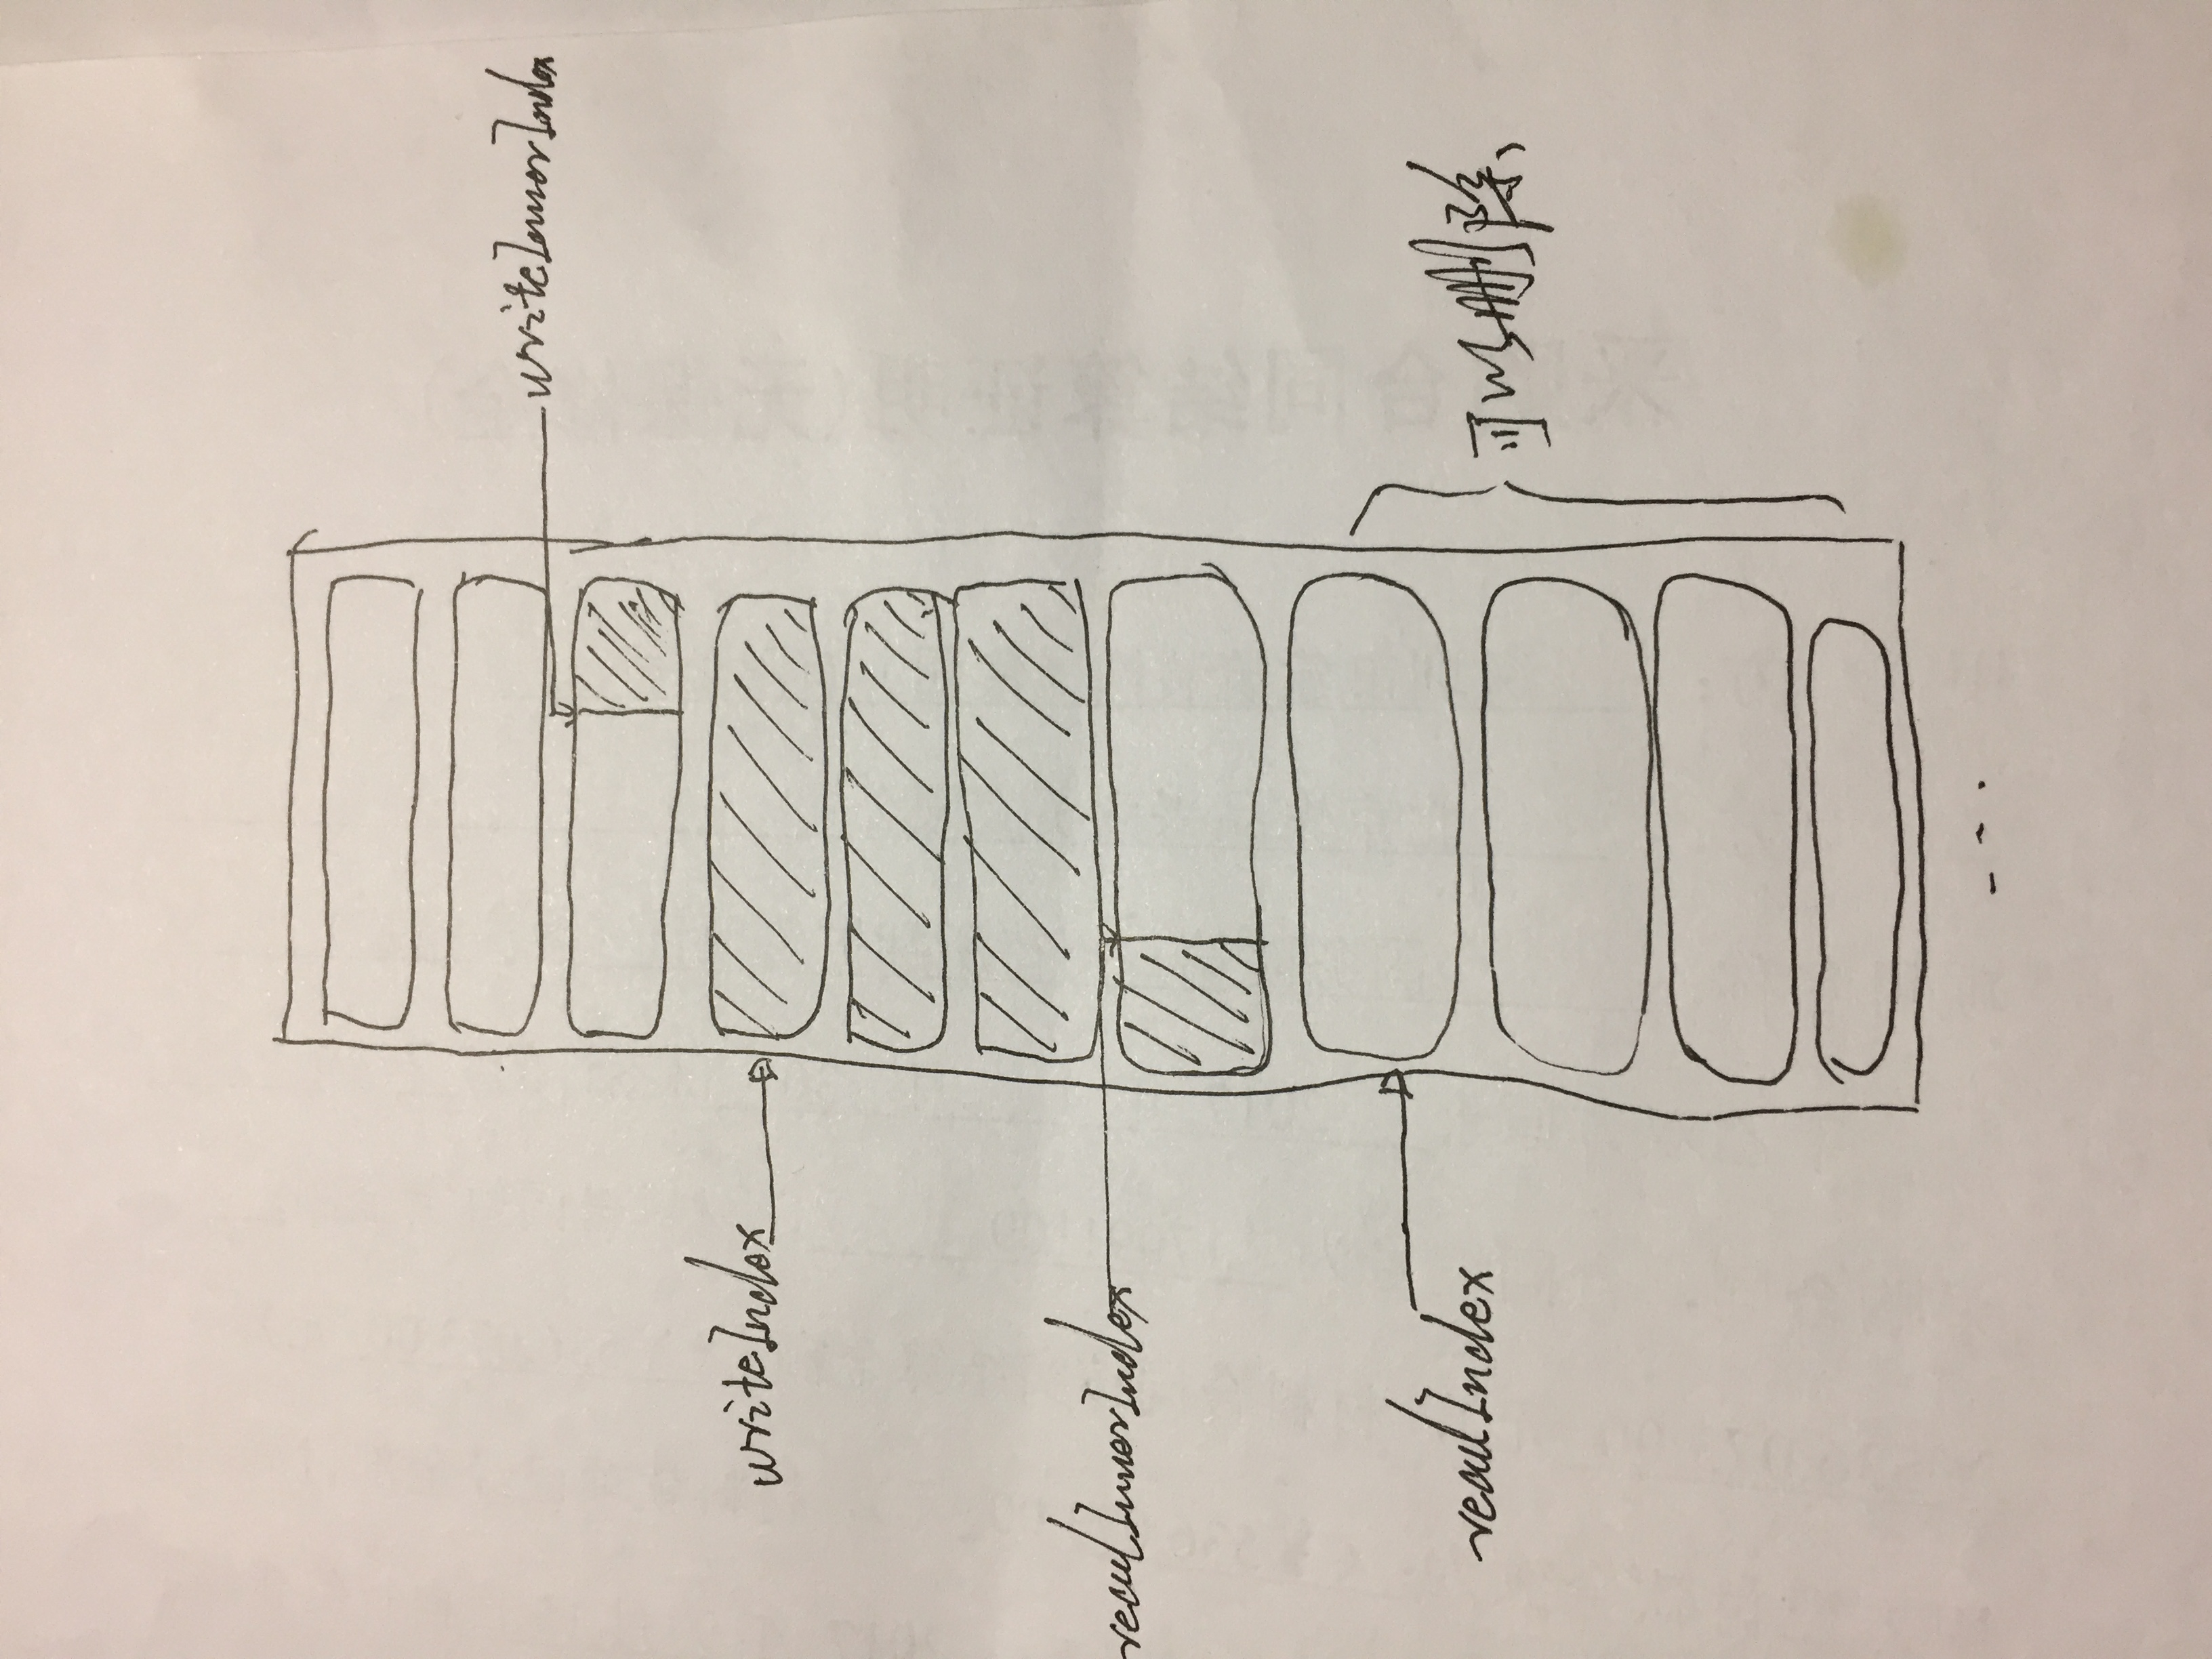 writeInnerIndex
writeIndex
readInnerIndex
readIndex
可以删除
...